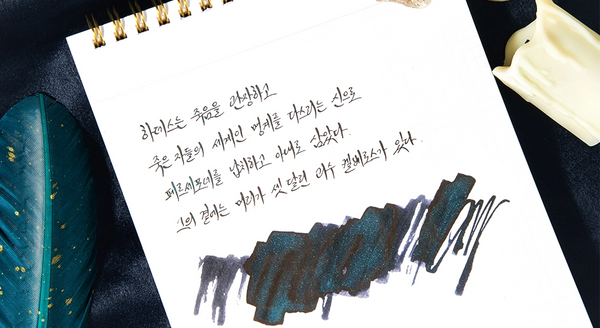 하데스는 죽음을 관장하고
죽은 자들의 세계인 명계를 다스리는 신으로
페르세포네를 납치하고 아내로 삼았다.
그의 곁에는 머리가 셋 달린 야수 켈베로스가 있다.